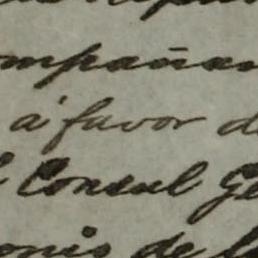 ompañan
á favor d
l Consul Ge
onio de la